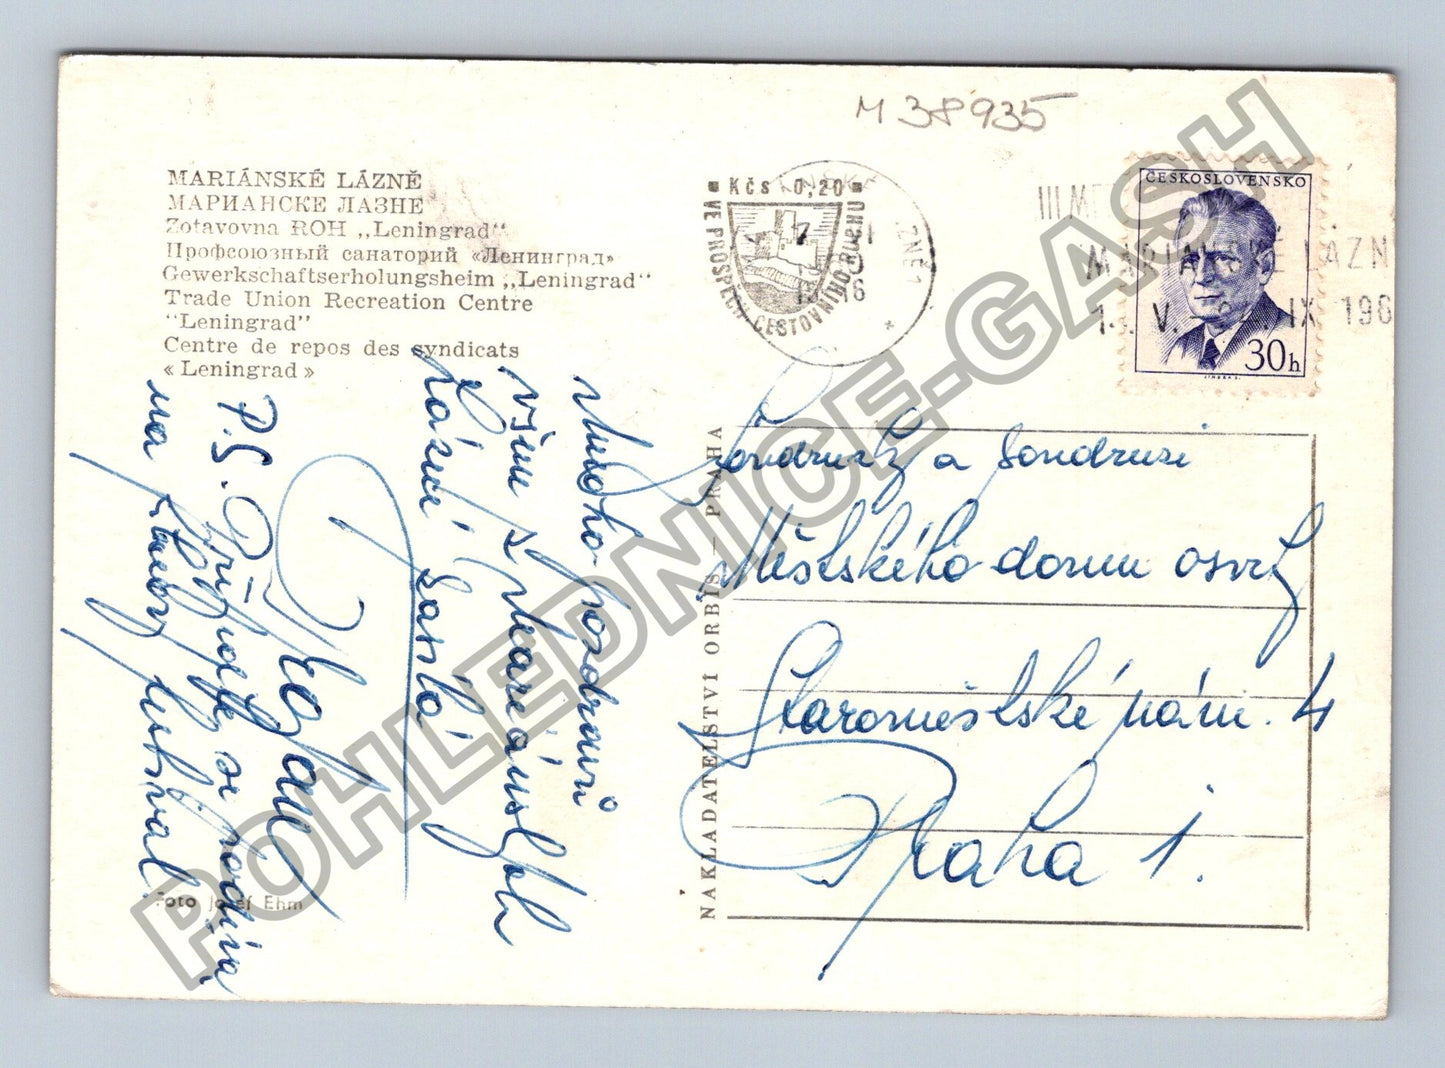 M 38935
MARIÁNSKÉ LÁZNĚ
МАРИАНСКЕ ЛАЗНЕ
Zotavovna ROH „Leningrad“
Профсоюзный санаторий «Ленинград»
Gewerkschaftserholungsheim „Leningrad“
Trade Union Recreation Centre
"Leningrad"
Centre de repos des syndicats
« Leningrad »
Kčs 0,20
VE PROSPĚCH CESTOVNÍHO RUCHU
ČESKOSLOVENSKO
30h
III
MARIÁNSKÉ LÁZN
V. IX 196
Mnoho pozdravů
všem z Mariánských
Lázní zasílá
P.S. Přijedu se podívat
na
NAKLADATELSTVÍ ORBIS — PRAHA
Soudruzi a soudruzi
Městského domu osvěty
Staroměstské nám. 4
Praha 1.
Foto Josef Ehm
POHLEDNICE-GASH